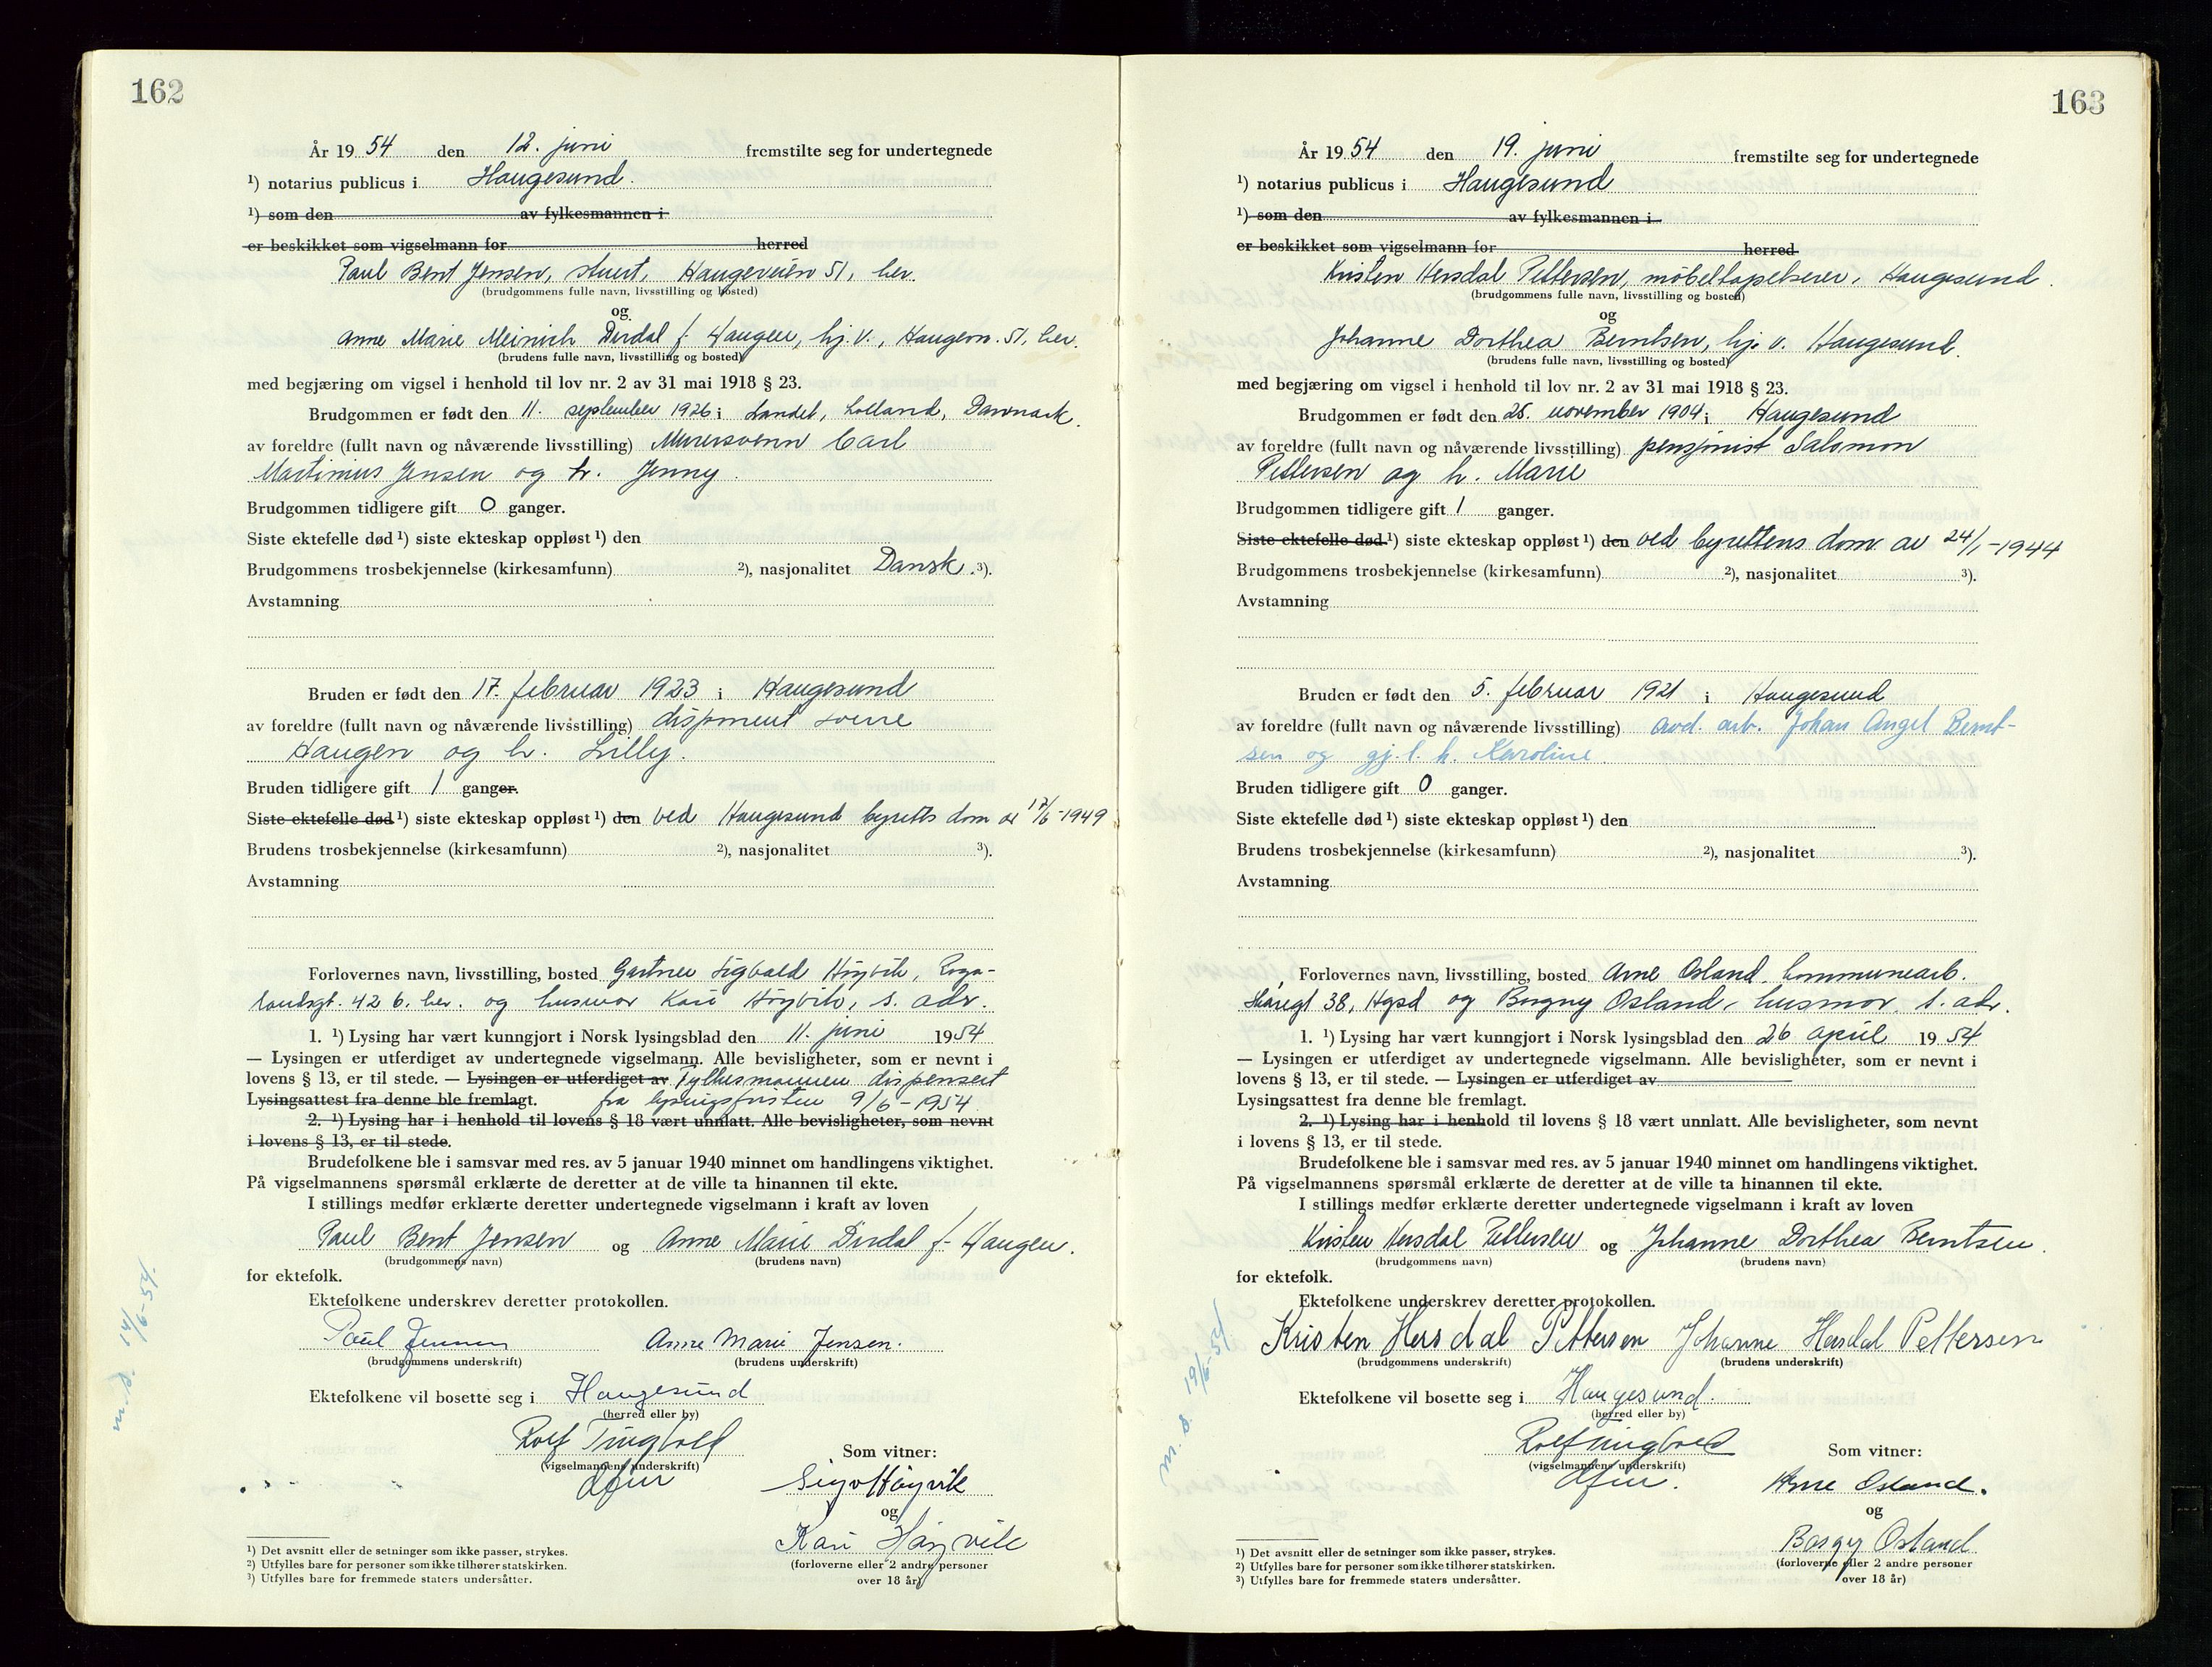 162
År 19 54 den 12. juni fremstilte seg for undertegnede
¹) notarius publicus i Haugesund.
¹) som den av fylkesmannen i
er beskikket som vigselmann for herred
Paul Bent Jensen, stuert, Haugeveien 51, her.
(brudgommens fulle navn, livsstilling og bosted)
og
Anne Marie Meinich Dirdal f. Haugen, hj. v., Haugevn. 51, her.
(brudens fulle navn, livsstilling og bosted)
med begjæring om vigsel i henhold til lov nr. 2 av 31 mai 1918 § 23.
Brudgommen er født den 11. september 1926 i Landet, Lolland, Danmark.
av foreldre (fullt navn og nåværende livsstilling) Murersvenn Carl
Martinius Jensen og h. Jenny.
Brudgommen tidligere gift 0 ganger.
Siste ektefelle død ¹) siste ekteskap oppløst ¹) den
Brudgommens trosbekjennelse (kirkesamfunn) ²), nasjonalitet Dansk. ³).
Avstamning
Bruden er født den 17. februar 1923 i Haugesund
av foreldre (fullt navn og nåværende livsstilling) disponent Sverre
Haugen og h. Lilly.
Bruden tidligere gift 1 ganger.
Siste ektefelle død ¹) siste ekteskap oppløst ¹) den ved Haugesund byretts dom av 17/6-1949
Brudens trosbekjennelse (kirkesamfunn) ²), nasjonalitet ³).
Avstamning
Forlovernes navn, livsstilling, bosted Gartner Sigvald Høyvik, Roga-
landsgt. 42 b. her. og husmor Kari Høyvik, s. adr.
1. ¹) Lysing har vært kunngjort i Norsk lysingsblad den 11. juni 1954
— Lysingen er utferdiget av undertegnede vigselmann. Alle bevisligheter, som er nevnt i
lovens § 13, er til stede. — Lysingen er utferdiget av Fylkesmannen dispensert
Lysingsattest fra denne ble fremlagt. fra lysingsfristen 9/6-1954
2. ¹) Lysing har i henhold til lovens § 18 vært unnlatt. Alle bevisligheter, som nevnt
i lovens § 13, er til stede.
Brudefolkene ble i samsvar med res. av 5 januar 1940 minnet om handlingens viktighet.
På vigselmannens spørsmål erklærte de deretter at de ville ta hinannen til ekte.
I stillings medfør erklærte deretter undertegnede vigselmann i kraft av loven
Paul Bent Jensen og Anne Marie Dirdal f. Haugen.
(brudgommens navn) (brudens navn)
for ektefolk.
Ektefolkene underskrev deretter protokollen.
Paul Jensen Anne Marie Jensen.
(brudgommens underskrift) (brudens underskrift)
Ektefolkene vil bosette seg i Haugesund
(herred eller by)
Rolf Tingvold
(vigselmannens underskrift)
dfm
Som vitner:
Sigv Høyvik
og
Kari Høyvik
(forloverne eller 2 andre personer
over 18 år)
m. s. 14/6-54.
¹) Det avsnitt eller de setninger som ikke passer, strykes.
²) Utfylles bare for personer som ikke tilhører statskirken.
³) Utfylles bare for fremmede staters undersåtter.
163
År 19 54 den 19. juni fremstilte seg for undertegnede
¹) notarius publicus i Haugesund
¹) som den av fylkesmannen i
er beskikket som vigselmann for herred
Kristen Hersdal Pettersen, møbeltapetserer, Haugesund.
(brudgommens fulle navn, livsstilling og bosted)
og
Johanne Dorthea Berntsen, hj. v. Haugesund.
(brudens fulle navn, livsstilling og bosted)
med begjæring om vigsel i henhold til lov nr. 2 av 31 mai 1918 § 23.
Brudgommen er født den 25. november 1904 i Haugesund
av foreldre (fullt navn og nåværende livsstilling) pensjonist Salomon
Pettersen og h. Marie
Brudgommen tidligere gift 1 ganger.
Siste ektefelle død ¹) siste ekteskap oppløst ¹) den ved byrettens dom av 24/1-1944
Brudgommens trosbekjennelse (kirkesamfunn) ²), nasjonalitet ³).
Avstamning
Bruden er født den 5. februar 1921 i Haugesund
av foreldre (fullt navn og nåværende livsstilling) avd. arb. Johan Angel Bernt-
sen og gj. l. h. Karoline
Bruden tidligere gift 0 ganger.
Siste ektefelle død ¹) siste ekteskap oppløst ¹) den
Brudens trosbekjennelse (kirkesamfunn) ²), nasjonalitet ³).
Avstamning
Forlovernes navn, livsstilling, bosted Arne Osland, kommunearb.
Skåregt 38, Hgsd og Borgny Osland, husmor, s. adr.
1. ¹) Lysing har vært kunngjort i Norsk lysingsblad den 26 april 19 54
— Lysingen er utferdiget av undertegnede vigselmann. Alle bevisligheter, som er nevnt i
lovens § 13, er til stede. — Lysingen er utferdiget av
Lysingsattest fra denne ble fremlagt.
2. ¹) Lysing har i henhold til lovens § 18 vært unnlatt. Alle bevisligheter, som nevnt
i lovens § 13, er til stede.
Brudefolkene ble i samsvar med res. av 5 januar 1940 minnet om handlingens viktighet.
På vigselmannens spørsmål erklærte de deretter at de ville ta hinannen til ekte.
I stillings medfør erklærte deretter undertegnede vigselmann i kraft av loven
Kristen Hersdal Pettersen og Johanne Dorthea Berntsen.
(brudgommens navn) (brudens navn)
for ektefolk.
Ektefolkene underskrev deretter protokollen.
Kristen Hersdal Pettersen Johanne Hersdal Pettersen
(brudgommens underskrift) (brudens underskrift)
Ektefolkene vil bosette seg i Haugesund.
(herred eller by)
Rolf Tingvold
(vigselmannens underskrift)
dfm.
Som vitner:
Arne Osland.
og
Borgny Osland
(forloverne eller 2 andre personer
over 18 år)
m. s. 19/6-54.
¹) Det avsnitt eller de setninger som ikke passer, strykes.
²) Utfylles bare for personer som ikke tilhører statskirken.
³) Utfylles bare for fremmede staters undersåtter.